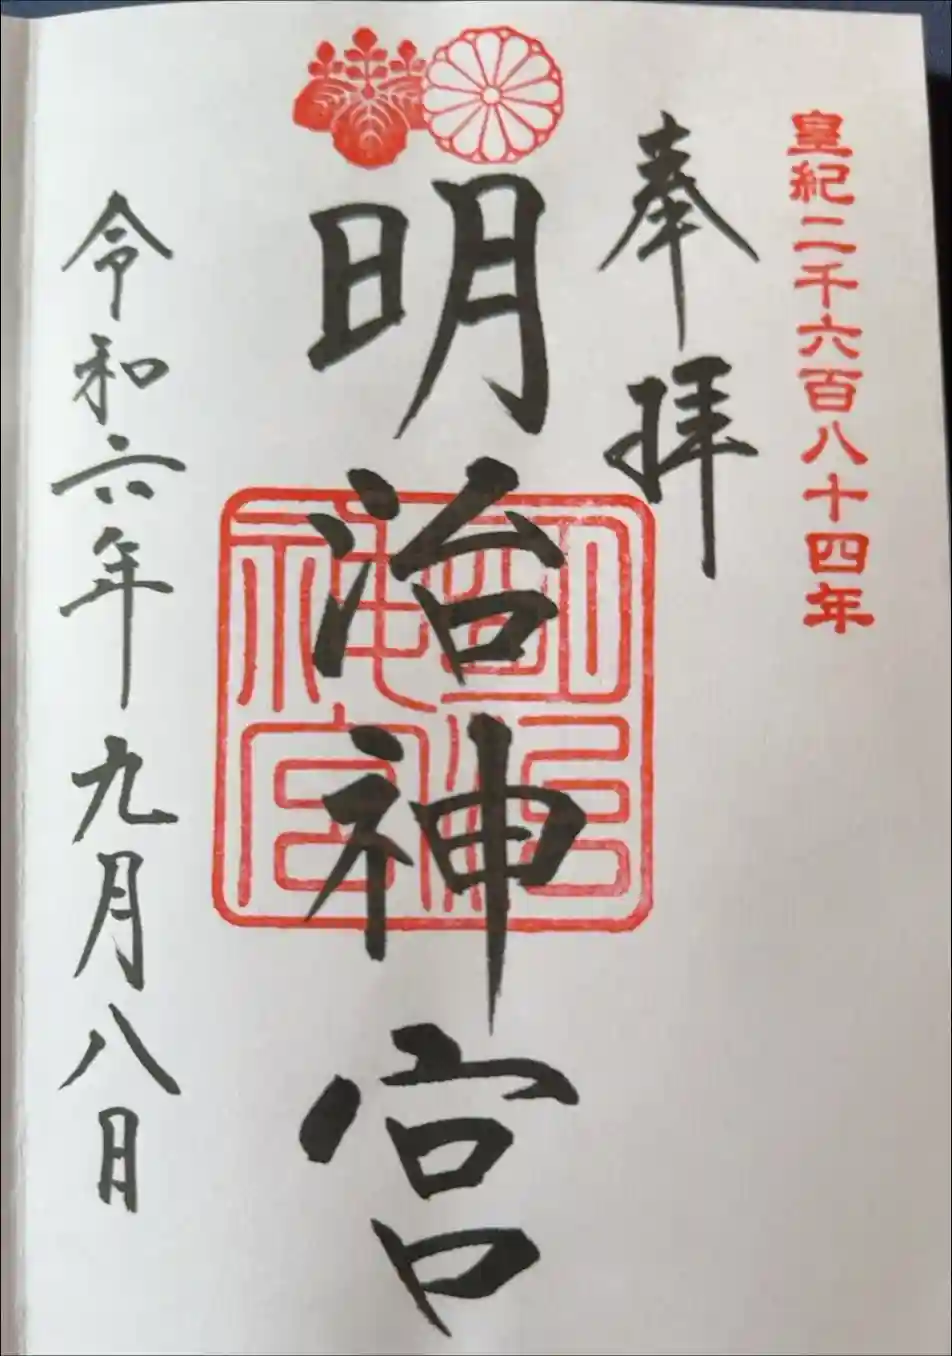 皇紀二千六百八十四年
奉拝
明治神宮
明治神宮
令和六年九月八日